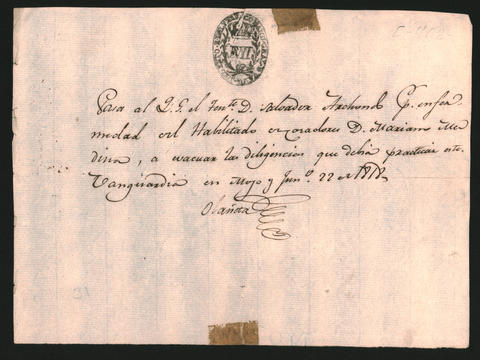 Pasa al Q. G. el Tente. D. Salvador Archond p. enfer
medad del Habilitado de Cazadores D. Mariano Me
dina, a evacuar las diligencias que debia practicar este.
Vanguardia en Mojo y Jun.º 22 de 1818
Olañeta